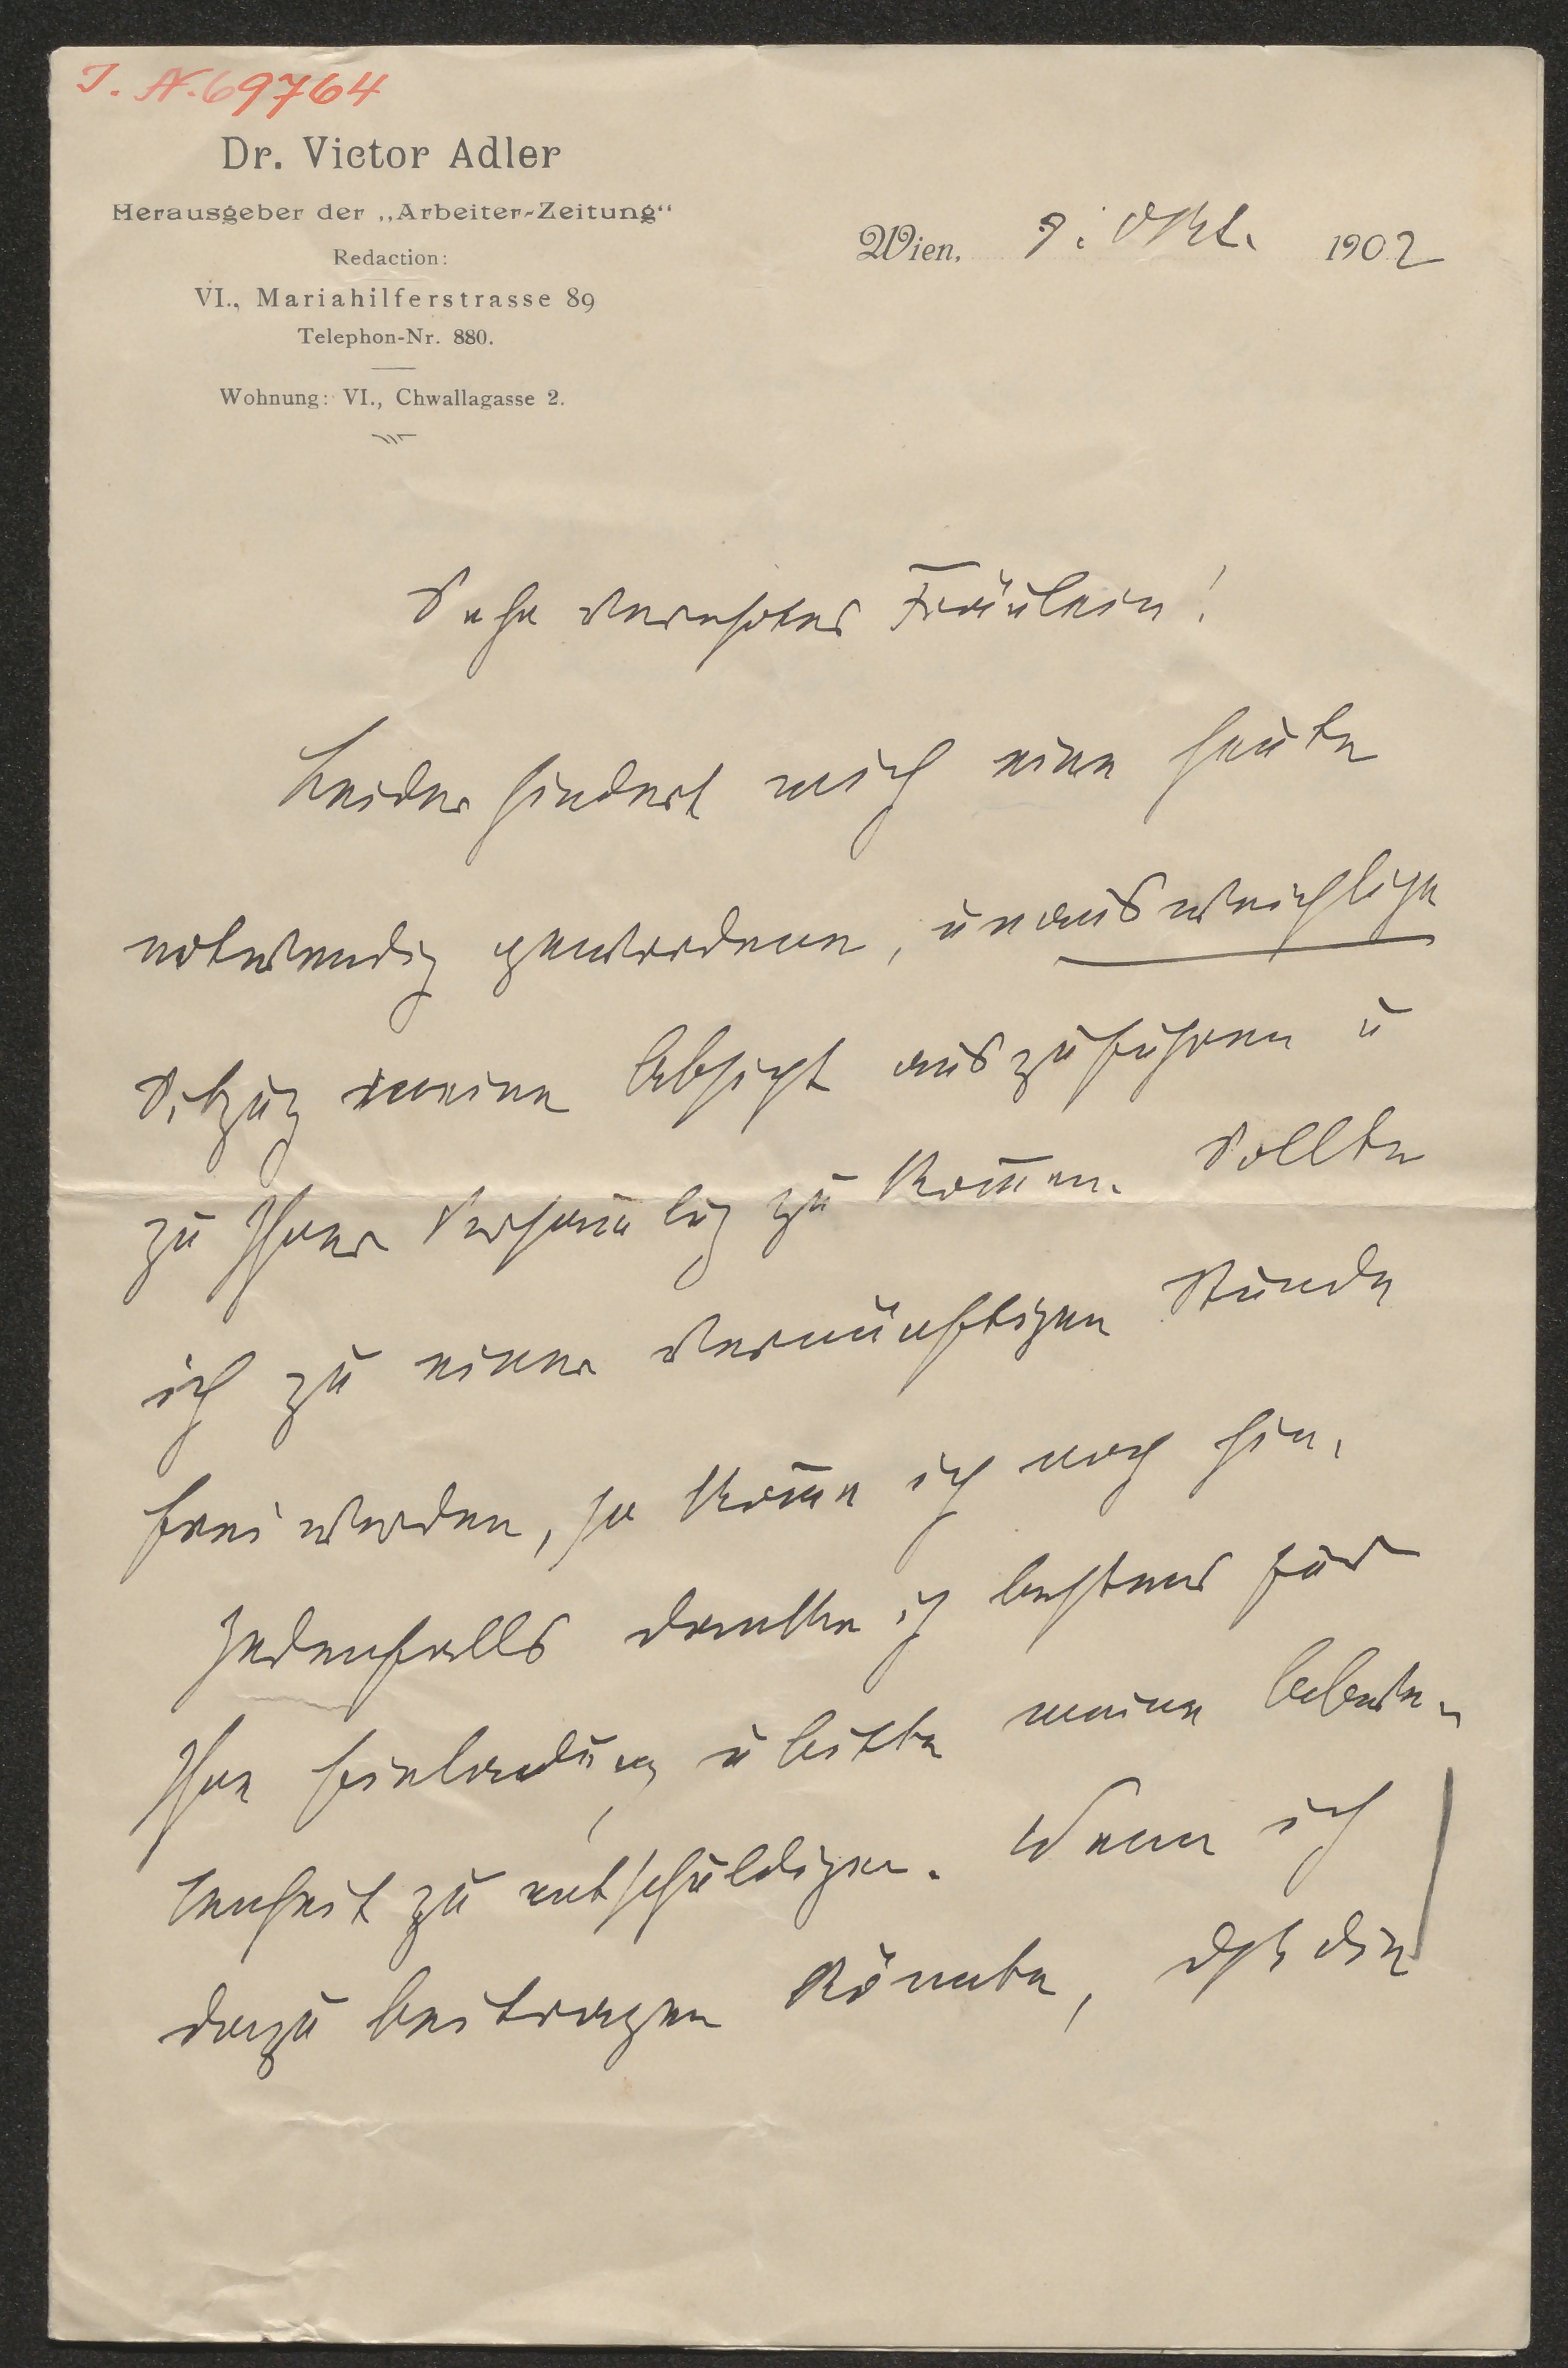 I. N. 69764
Dr. Victor Adler
Herausgeber der „Arbeiter-Zeitung“
Redaction:
VI., Mariahilferstrasse 89
Telephon-Nr. 880.
Wohnung: VI., Chwallagasse 2.
Wien, 9. Okt. 1902
Sehr verehrtes Fräulein!
Leider hindert mich eine heute
notwendig gewordene, unausweichliche
Sitzug meine Absicht auszuführen u
zu Ihrer Versam̄lug zu kom̄en. Sollte
ich zu einer vernünftigen Stunde
frei werden, so kom̄e ich noch hin.
Jedenfalls danke ich bestens für
Ihre Einladung u bitte meine
zu entschuldigen. Wenn ich
dazu beitragen könnte, dß die